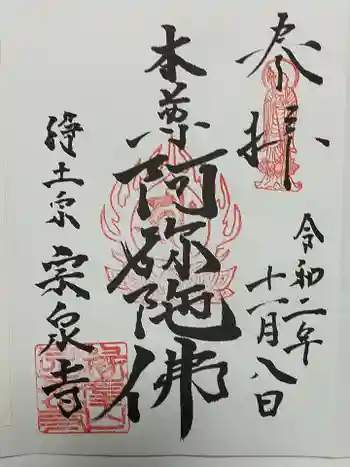 奉拝
令和二年
十一月八日
本尊阿弥陀佛
浄土宗
宗泉寺